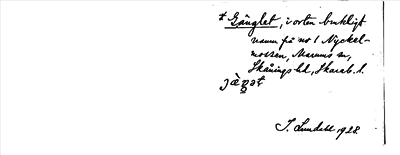 * Gänglet, i orten brukligt
namn på no 1 Nyckel-
mossen, Marums sn,
Skånings hd, Skarab. l.
I. Lundahl 1928.